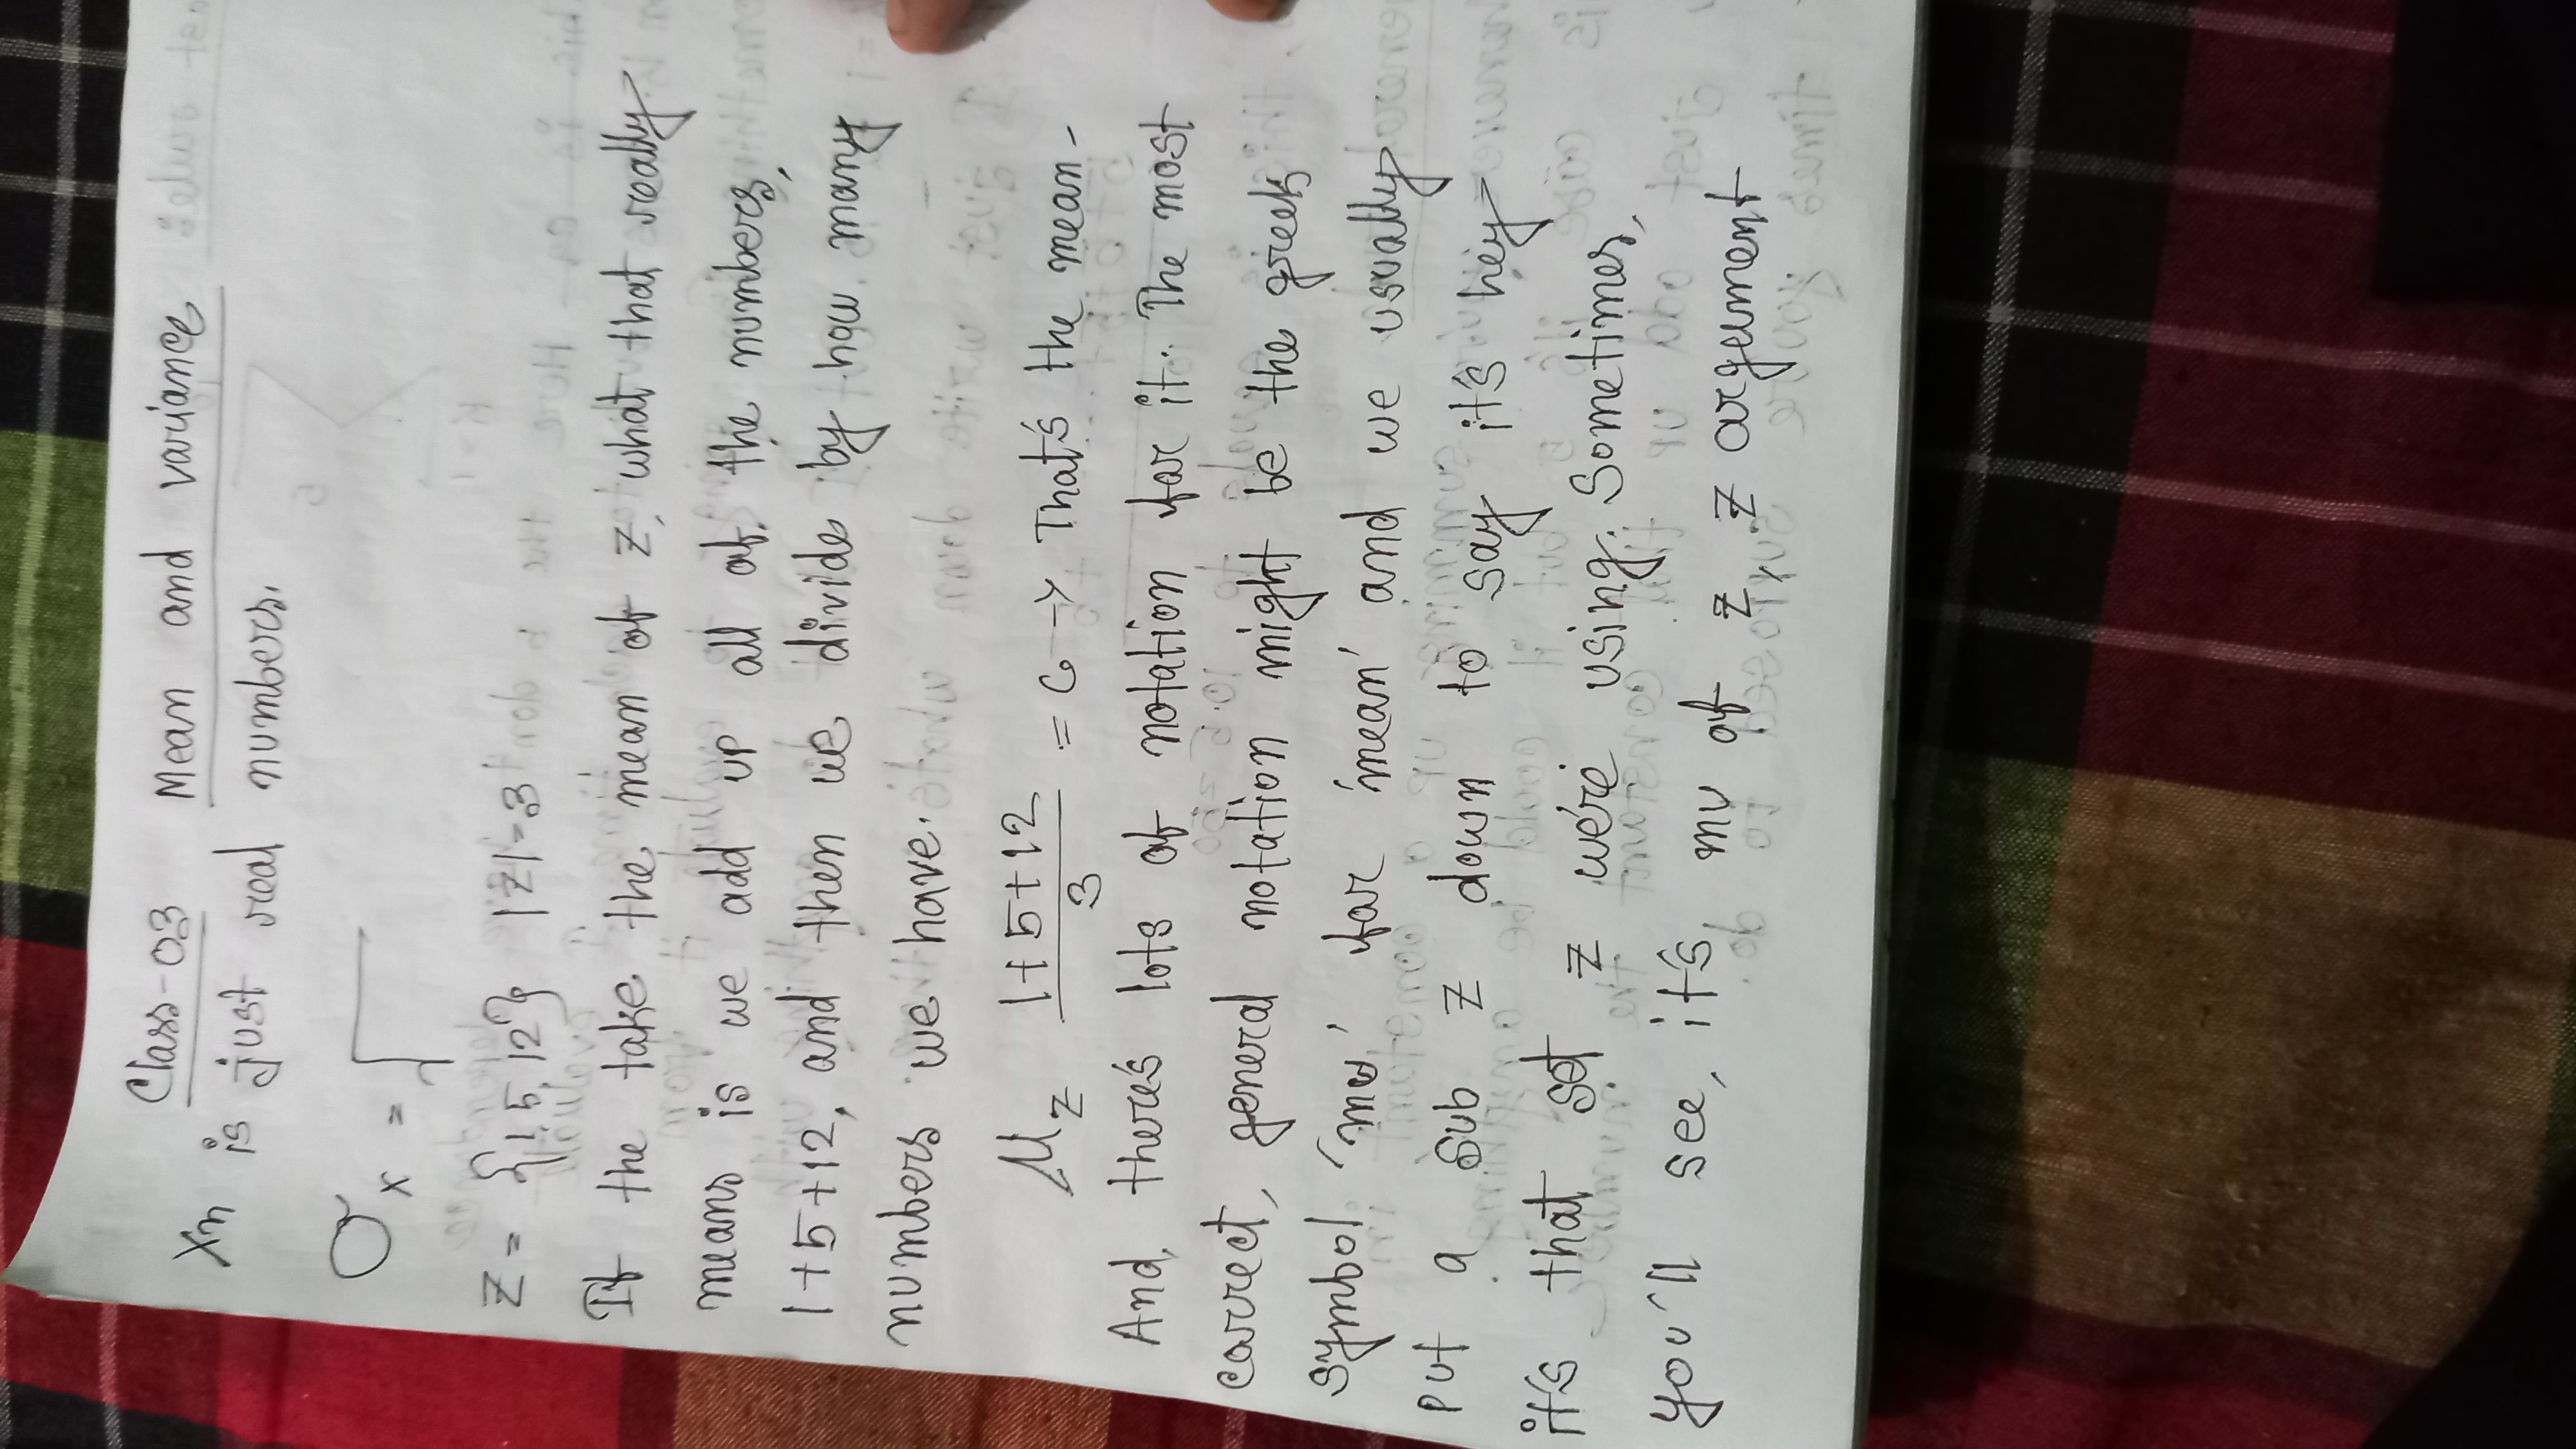 Class-03 Mean and variance
Xn is just real numbers.
σx = √
Z = {1, 5, 12} |Z| = 3
If the take the mean of z, what that really
means is we add up all of the numbers,
1+5+12, and then we divide by how many
numbers we have.
μz 1+5+12/3 = 6 → That's the mean-
And, there's lots of notation for it. The most
correct, general notation might be the greek
symbol 'mu' for 'mean' and we usually
put a sub z down to say it's hey
it's that set z we're using. Sometimes,
you'll see, it's, mu of z, z argument